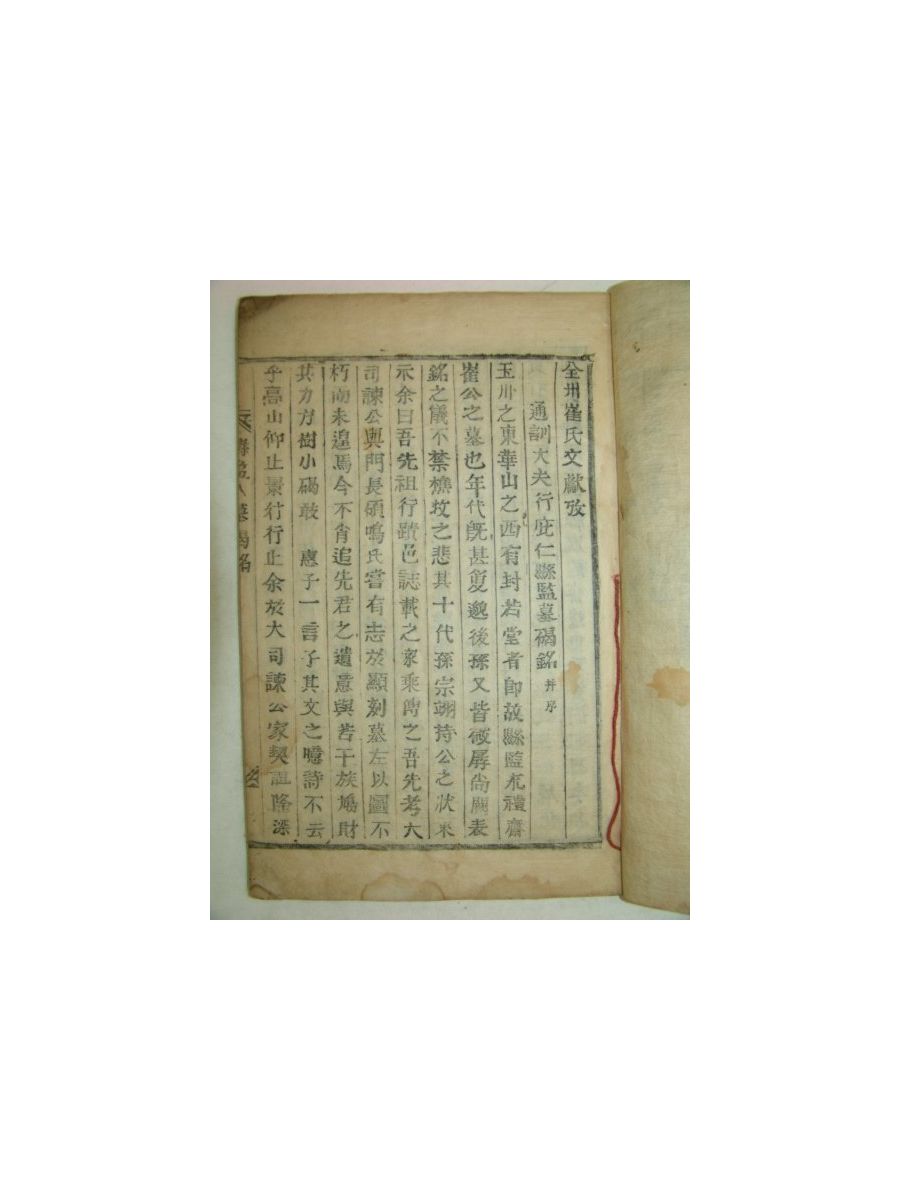 全州崔氏文獻攷
通訓大夫行庇仁縣監墓碣銘 并序
玉州之東華山之西有封若堂者即故縣監永禮齋
崔公之墓也年代旣甚夐邈後孫又皆孱尙闕表
銘之儀不禁樵牧之悲其十代孫宗翊持公之狀來
示余曰吾先祖行蹟邑誌載之家乘傳之吾先考大
司諫公與門長碩鳴氏嘗有志於顯刻墓左以圖不
朽而未遑焉今不肖追先君之遺意與若干族鳩財
其力方樹小碣敢 惠子一言子其文之噫詩不云
乎高山仰止景行行止余於大司諫公家契誼隆深